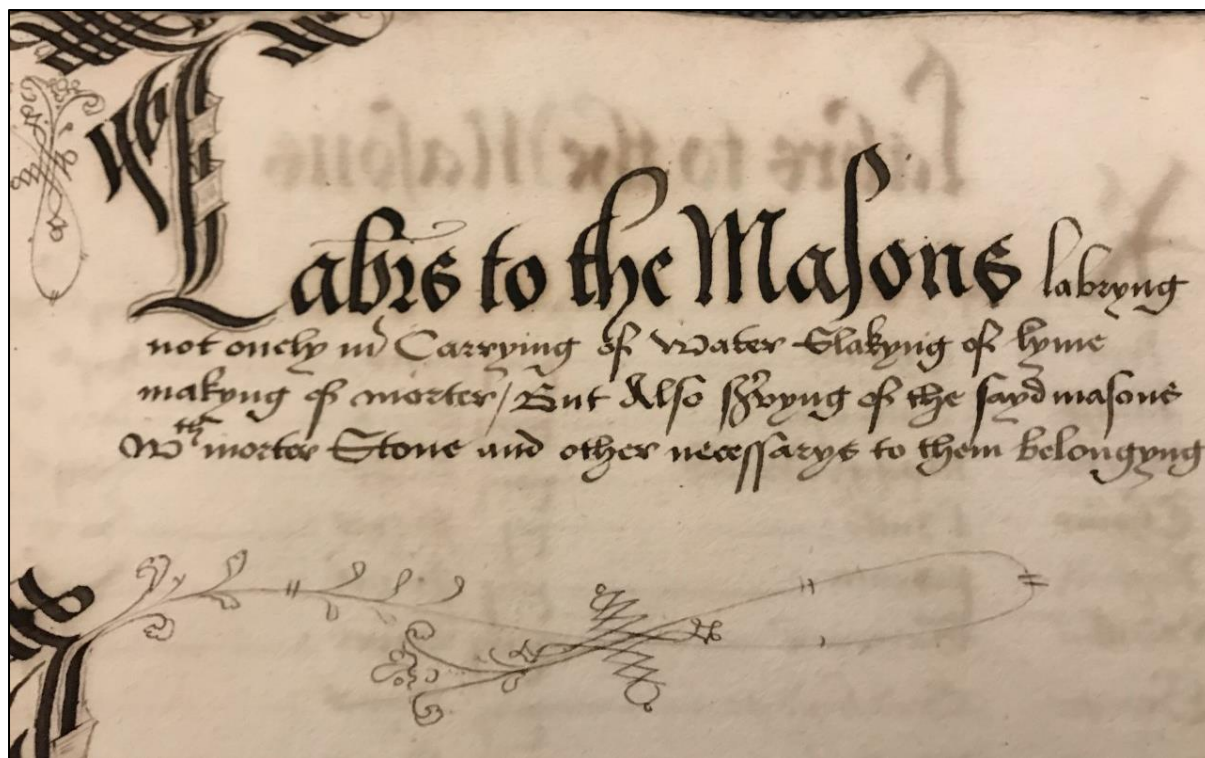 Labrs to the Masons labryng
not onely in Carrying of Water Slakyng of lyme
makyng of morter / But Also s͛vyng of the sayd masons
Wth morter Stone and other necessarys to them belongyng